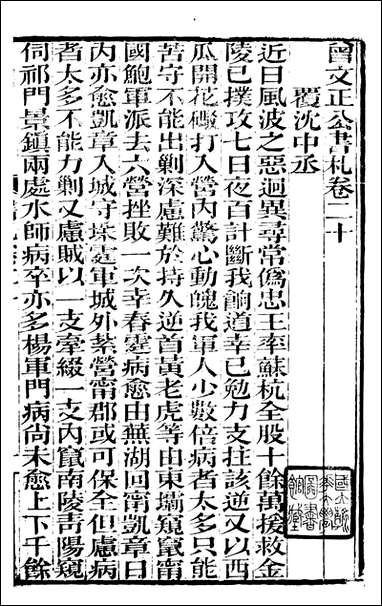 曾文正公書札卷二十
覆沈中丞
近日風波之惡迥異尋常僞忠王率蘇杭全股十餘萬援救金
陵已撲攻七日夜百計斷我餉道幸已勉力支拄該逆又以西
瓜開花礮打入營內驚心動魄我軍人少數倍病者太多只能
苦守不能出剿深慮難於持久逆首黃老虎等由東壩窺竄甯
國鮑軍派去六營挫敗一次幸春霆病愈由蕪湖回甯凱章日
內亦愈凱章入城守垛霆軍城外紮營甯郡或可保全但慮病
者太多不能力剿又慮賊以一支牽綴一支內竄南陵青陽窺
伺祁門景鎮兩處水師病卒亦多楊軍門病尚未愈上下千餘